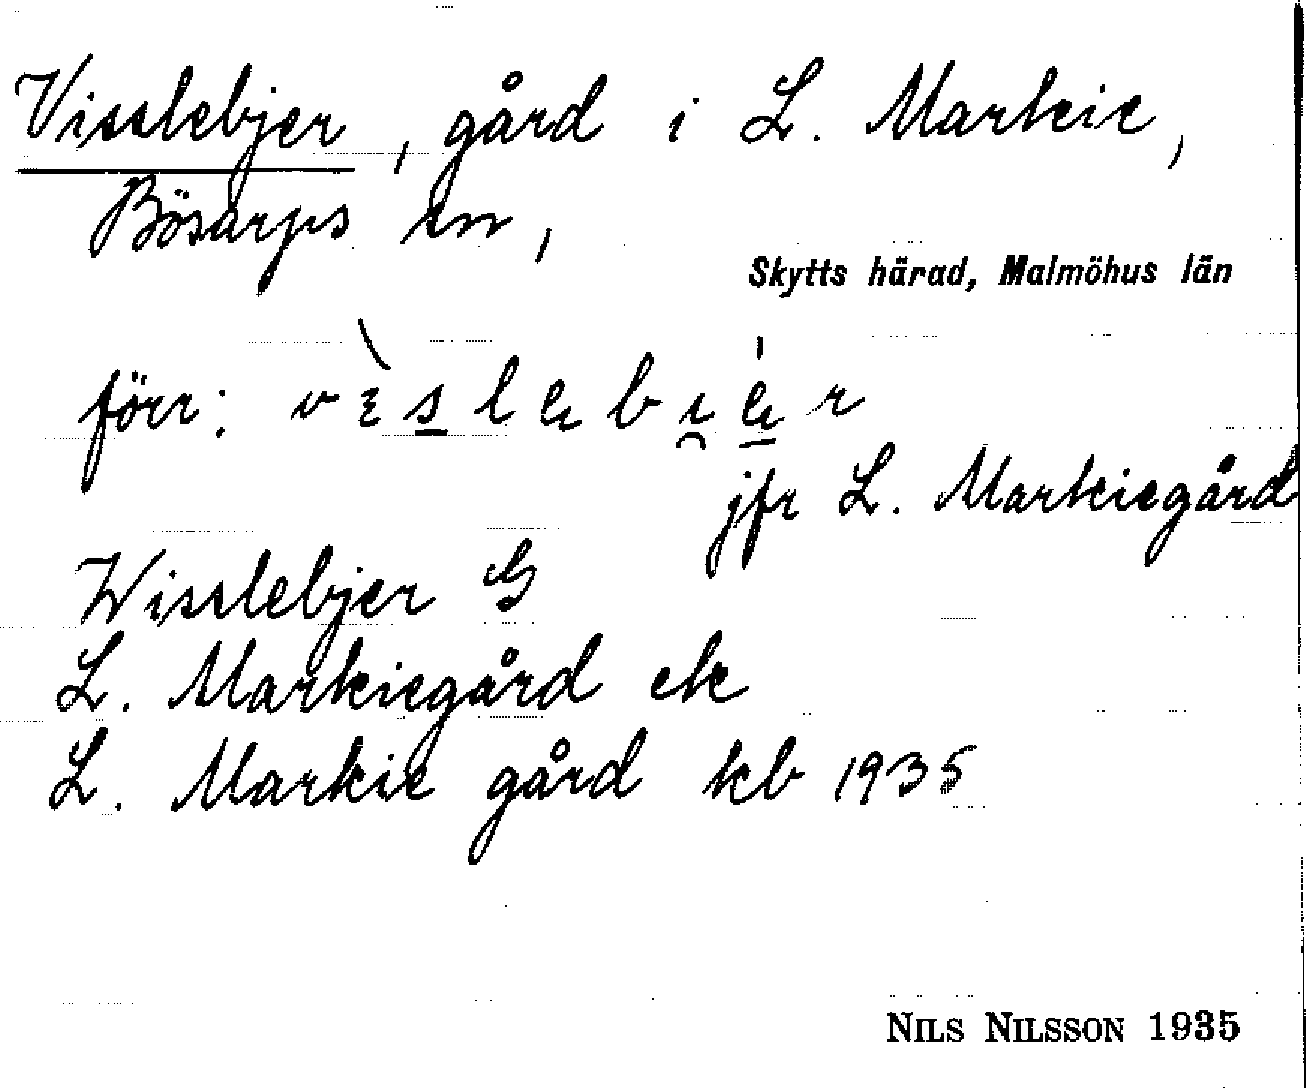 Visslebjer, gård i L. Markie,
Bösarps sn,
Skytts härad, Malmöhus län
förr:
jfr L. Markiegård
Wisslebjer G
L. Markiegård ek
L. Markie gård kb 1935
NILS NILSSON 1935